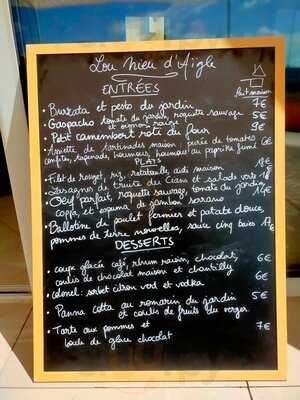 Lou nieu d'Aigle
ENTRÉES
Fait maison
• Burrata et pesto du jardin 7€
• Gaspacho tomate du jardin, roquette sauvage 5€
et oignon rouge
• Petit camembert roti du four 9€
• Assiette de tartinades maison : purée de tomates 6€
confites, tapenade, houmous, houmous au paprika fumé
PLATS
• Filet de rouget, riz, ratatouille aide maison
• Lasagnes de truite du Cians et salade verte
• Oeuf parfait, roquette sauvage, tomate du jardin,
coppa, et espuma de jambon serrano
• Ballotine de poulet fermier et patate douce,
pommes de terre nouvelles, sauce cinq baies 17€
DESSERTS
• coupe glacée café, rhum raisin, chocolat, 6€
coulis de chocolat maison et chantilly
• colonel : sorbet citron vert et vodka 6€
• Panna cotta au romarin du jardin 5€
et coulis de fruits du verger
• Tarte aux pommes et 7€
boule de glace chocolat